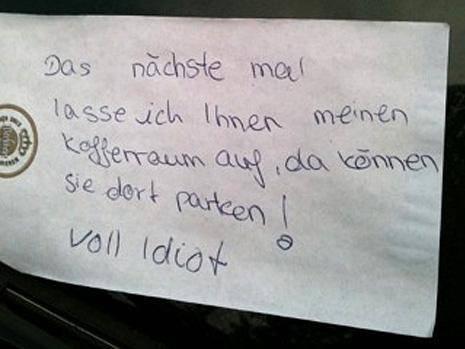 Das nächste mal
lasse ich Ihnen meinen
Kofferraum auf, da können
sie dort parken!
Voll Idiot